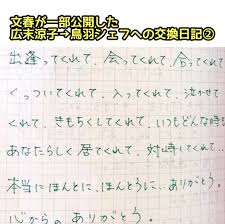 文春が一部公開した
広末涼子→鳥羽シェフへの交換日記②
出逢ってくれて、会ってくれて、合ってくれて
くっついてくれて、入ってくれて、泣かせて
くれて、きもちくしてくれて、いつもどんな時も
あなたらしく居てくれて、対峙してくれて…
本当にほんとに、ほんとうに…ありがとう。
心からの ありがとう。